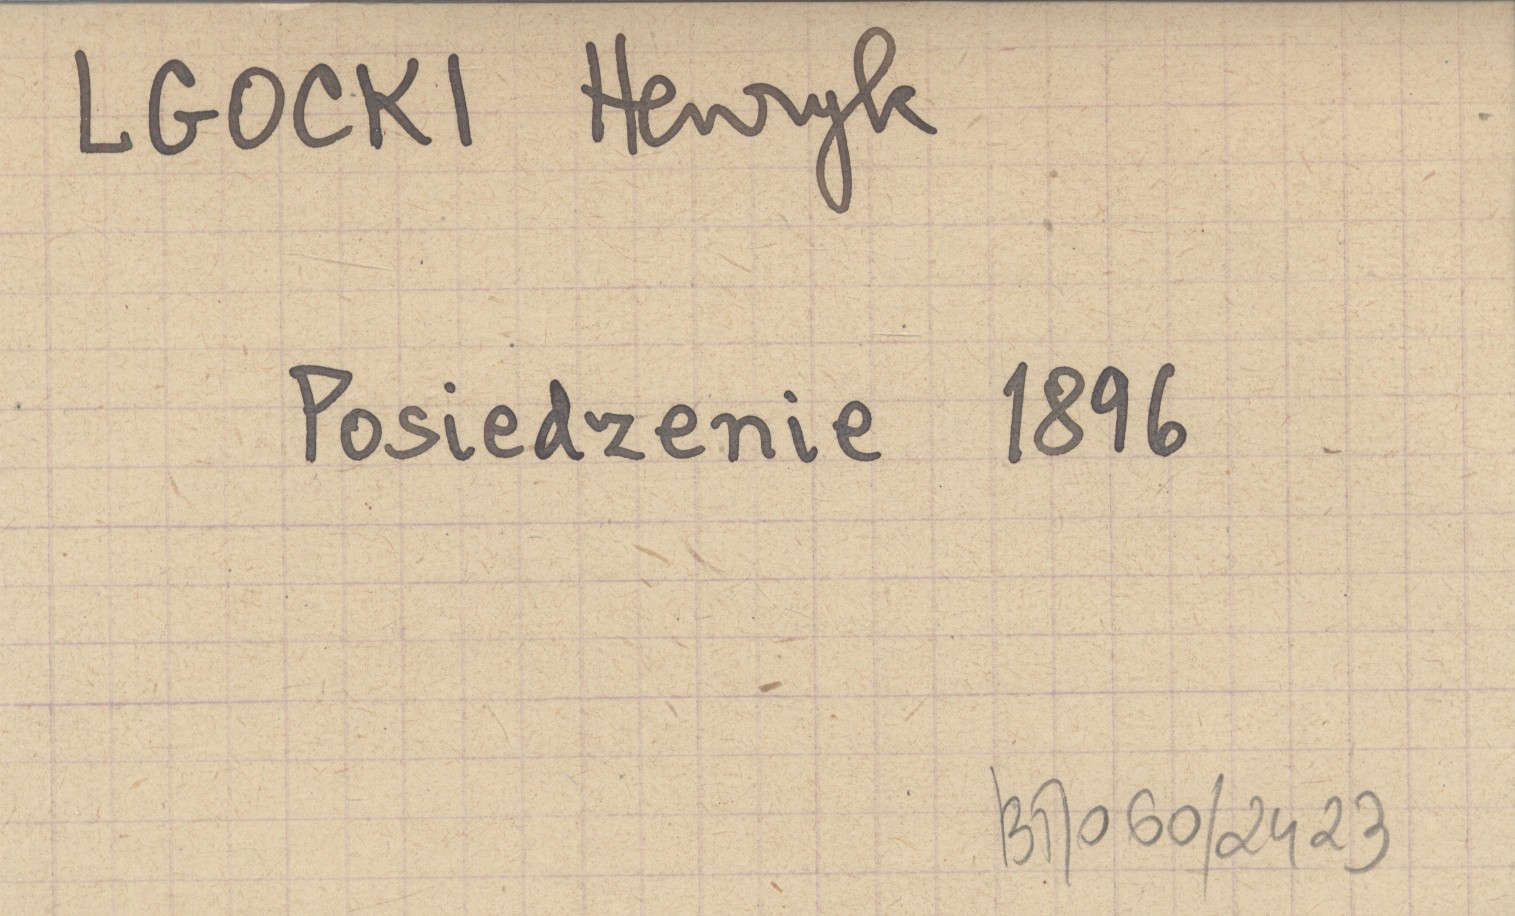 LGOCKI Henryk
Posiedzenie 1896
060/2423